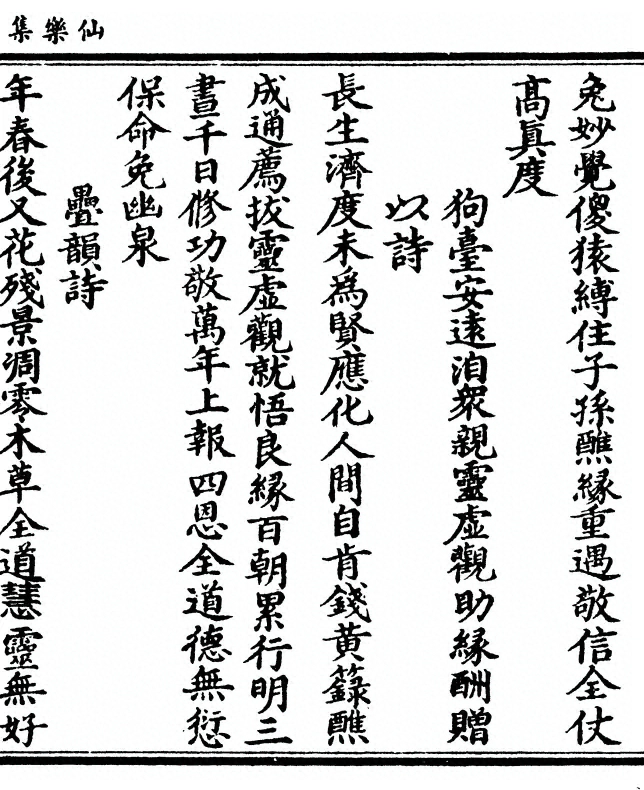 仙樂集
兔妙覺儍猿縛住子孫醮緣重遇敬信全仗
高眞度
狗臺安遠洎衆親靈虛觀助緣酬贈
以詩
長生濟度未爲賢應化人間自肯錢黃籙醮
成通薦拔靈虛觀就悟良緣百朝累行明三
晝千日修功敬萬年上報四恩全道德無愆
保命免幽泉
疊韻詩
年春後又花殘景凋零木草全道慧靈無好